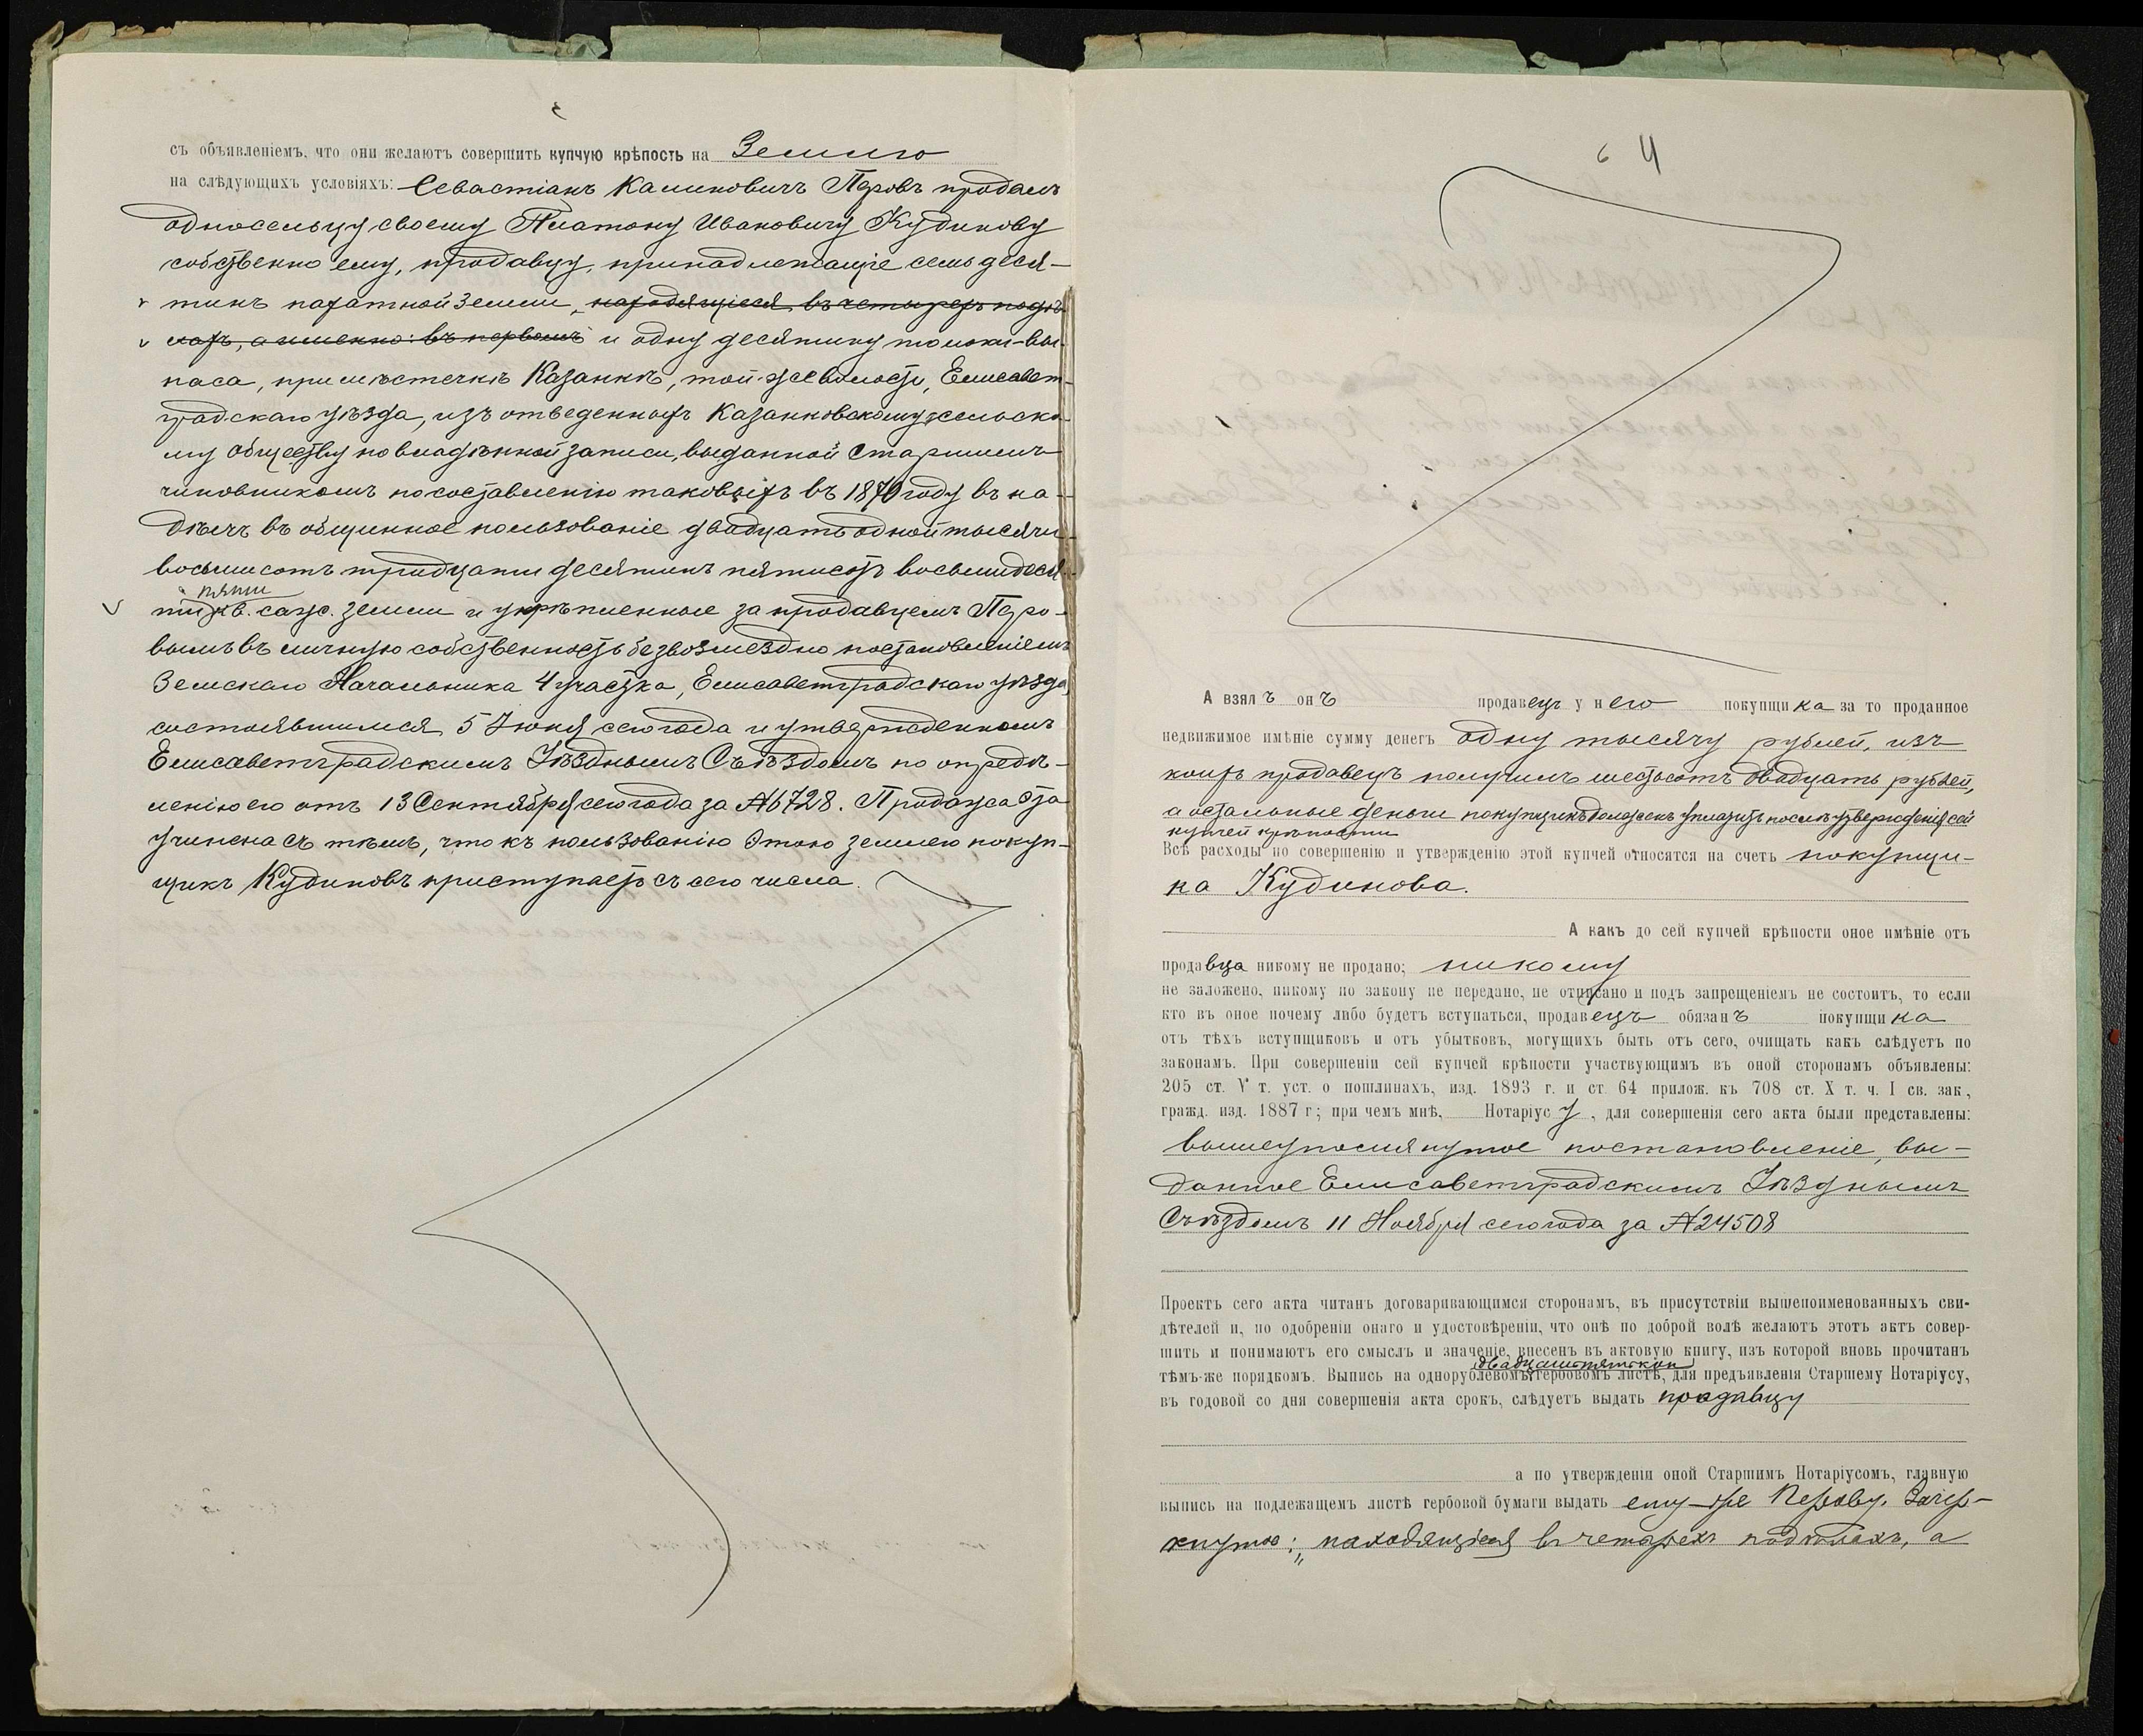 съ объявленіемъ, что они желаютъ совершить купчую крѣпость на Землю
на слѣдующихъ условіяхъ: Севастіанъ Калиновичъ Перовъ продалъ
односельцу своему Платону Ивановичу Кудинову
собственно ему, продавцу, принадлежащіе семь деся-
тинъ пахатной земли, находящіеся въ четырехъ подѣ-
лахъ, а именно: въ первомъ и одну десятину толоки-вы-
паса, при мѣстечкѣ Казанкѣ, той-же волости, Елисавет-
градскаго уѣзда, изъ отведенныхъ Казанковскому сельско-
му обществу по владѣнной записи, выданной Старшимъ
чиновникомъ по составленію таковыхъ въ 1870 году въ на-
дѣлъ въ общинное пользованіе двадцать одной тысячи
восьмисотъ тридцати десятинъ пятисотъ восьмидеся-
пяти
ти кв. саж. земли и укрѣпленные за продавцемъ Перо-
вымъ въ личную собственность безвозмездно постановленіемъ
Земскаго Начальника 4 участка, Елисаветградскаго уѣзда,
состоявшимся 5 Іюня сего года и утвержденномъ
Елисаветградскимъ Уѣзднымъ Съѣздомъ по опредѣ-
ленію его отъ 13 Сентября сего года за № 6728. Продажа эта
учинена съ тѣмъ, что къ пользованію этою землею покуп-
щикъ Кудиновъ приступаетъ съ сего числа.
6 4
А взялъ онъ продавецъ у него покупщика за то проданное
недвижимое имѣніе сумму денегъ одну тысячу рублей, изъ
коихъ продавецъ получилъ шестьсотъ двадцать рублей,
а остальные деньги покупщикъ долженъ уплатить послѣ утвержденія сей
купчей крѣпости
Всѣ расходы по совершенію и утвержденію этой купчей относятся на счетъ покупщи-
ка Кудинова.
А какъ до сей купчей крѣпости оное имѣніе отъ
продавца никому не продано; никому
не заложено, никому по закону не передано, не отписано и подъ запрещеніемъ не состоитъ, то если
кто въ оное почему либо будетъ вступаться, продавецъ обязанъ покупщика
отъ тѣхъ вступщиковъ и отъ убытковъ, могущихъ быть отъ сего, очищать какъ слѣдуетъ по
законамъ. При совершеніи сей купчей крѣпости участвующимъ въ оной сторонамъ объявлены:
205 ст. V т. уст. о пошлинахъ, изд. 1893 г. и ст. 64 прилож. къ 708 ст. X т. ч. I св. зак,
гражд. изд. 1887 г; при чемъ мнѣ, Нотаріусу, для совершенія сего акта были представлены:
вышеупомянутое постановленіе, вы-
данное Елисаветградскимъ Уѣзднымъ
Съѣздомъ 11 Ноября сего года за № 24508
Проектъ сего акта читанъ договаривающимся сторонамъ, въ присутствіи вышепоименованныхъ сви-
дѣтелей и, по одобреніи онаго и удостовѣреніи, что онѣ по доброй волѣ желаютъ этотъ актъ совер-
шить и понимаютъ его смыслъ и значеніе, внесенъ въ актовую книгу, изъ которой вновь прочитанъ
двадцатипятикоп
тѣмъ-же порядкомъ. Выпись на однорублевомъ гербовомъ листѣ, для предъявленія Старшему Нотаріусу,
въ годовой со дня совершенія акта срокъ, слѣдуетъ выдать продавцу
а по утвержденіи оной Старшимъ Нотаріусомъ, главную
выпись на подлежащемъ листѣ гербовой бумаги выдать ему-же Перову. Зачер-
кнутое: „находящіеся въ четырехъ подѣлахъ, а